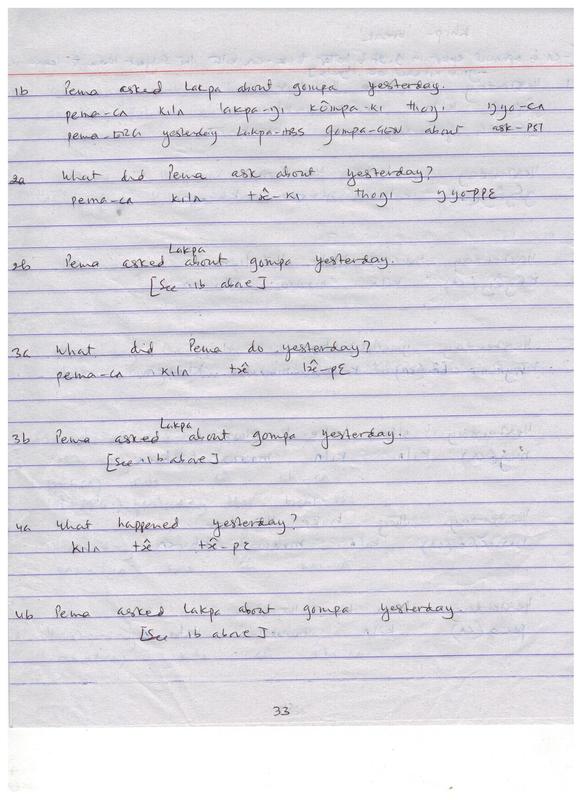 1b Pema asked Lakpa about gompa yesterday.
pema-cʌ kilʌ lakpa-gi kômpa-ki thogi
pema-ERG yesterday Lakpa-ABS gompa-GEN about ask-PST
2a What did Pema ask about yesterday?
pema-cʌ kilʌ thogi
2b Pema asked Lakpa about gompa yesterday.
[See 1b above]
3a What did Pema do yesterday?
pema-cʌ kilʌ
3b Pema asked Lakpa about gompa yesterday.
[See 1b above]
4a What happened yesterday?
kilʌ
4b Pema asked Lakpa about gompa yesterday
[See 1b above]
33